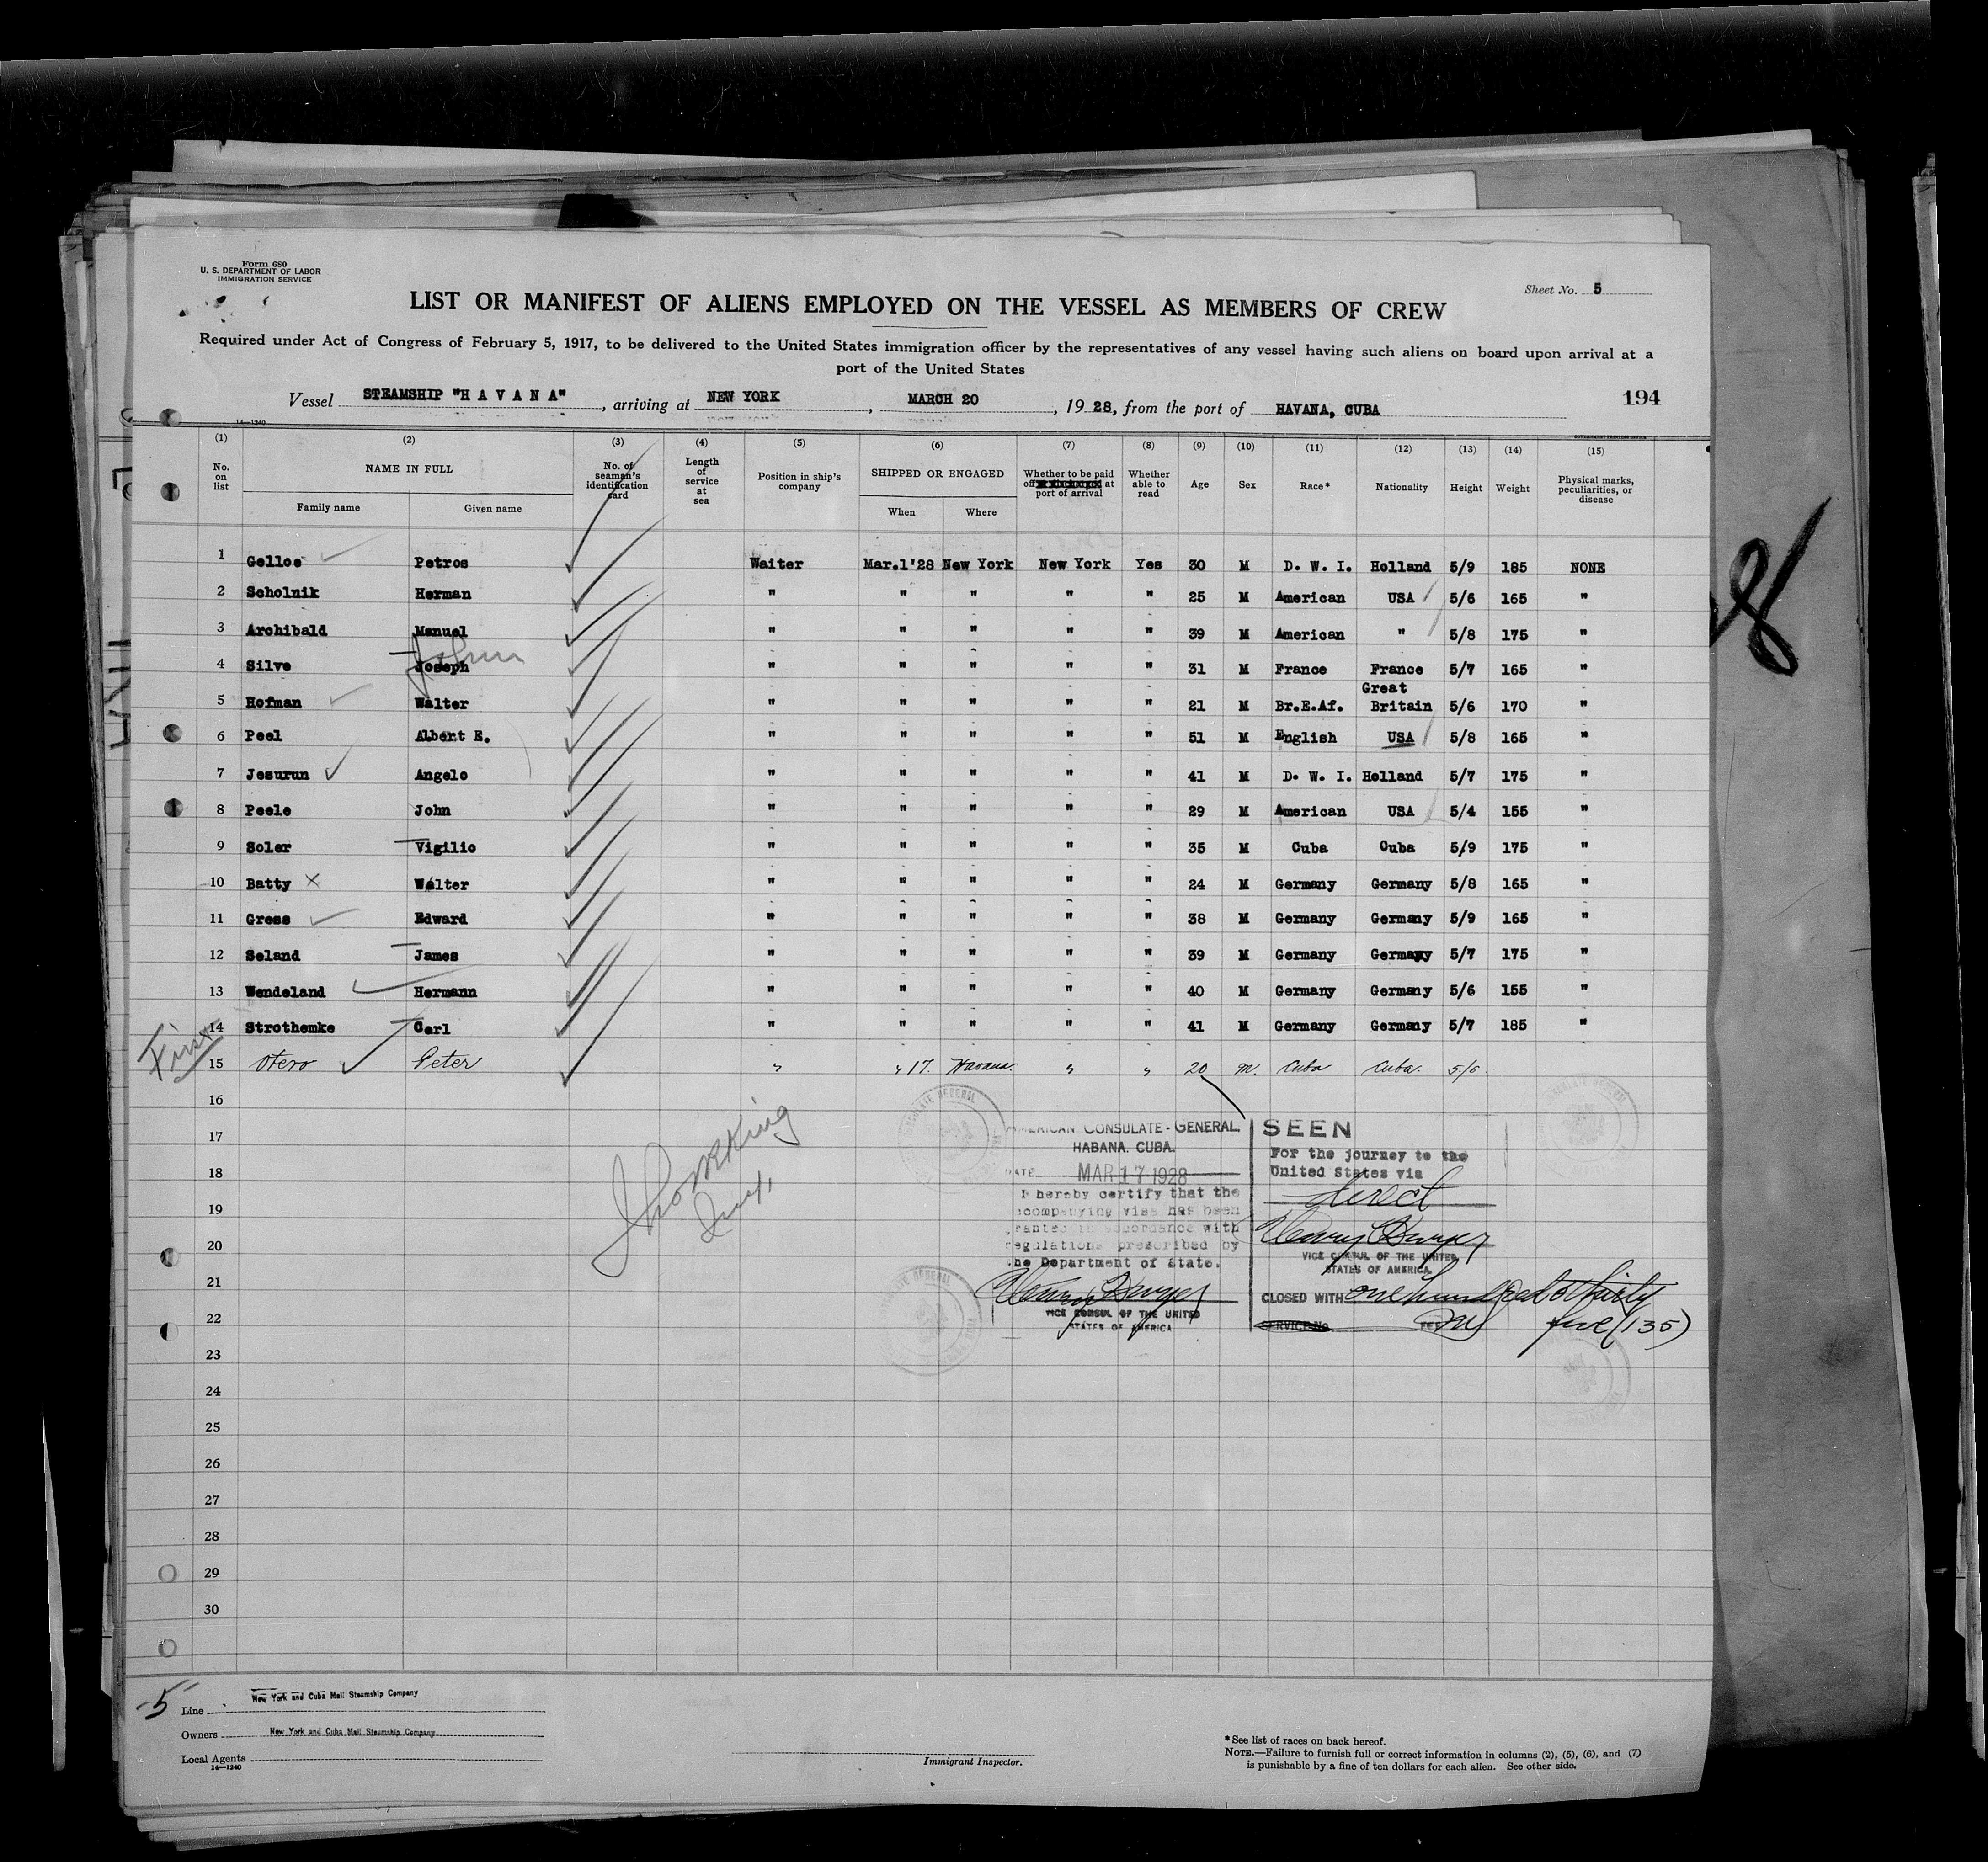 Form 680
U. S. DEPARTMENT OF LABOR
IMMIGRATION SERVICE
Sheet No. 5
LIST OR MANIFEST OF ALIENS EMPLOYED ON THE VESSEL AS MEMBERS OF CREW
Required under Act of Congress of February 5, 1917, to be delivered to the United States immigration officer by the representatives of any vessel having such aliens on board upon arrival at a
port of the United States
Vessel STEAMSHIP "H A V A N A", arriving at NEW YORK, MARCH 20, 1928, from the port of HAVANA, CUBA
194
14—1240
(1) (2) (3) (4) (5) (6) (7) (8) (9) (10) (11) (12) (13) (14) (15)
No. on list NAME IN FULL No. of seaman's identification card Length of service at sea Position in ship's company SHIPPED OR ENGAGED Whether to be paid off at port of arrival Whether able to read Age Sex Race* Nationality Height Weight Physical marks, peculiarities, or disease
Family name Given name When Where
1 Gelloe Petros Waiter Mar.1'28 New York New York Yes 30 M D. W. I. Holland 5/9 185 NONE
2 Scholnik Herman " " " " " 25 M American USA 5/6 165 "
3 Archibald Manuel " " " " " 39 M American " 5/8 175 "
John
4 Silve Joseph " " " " " 31 M France France 5/7 165 "
5 Hofman Walter " " " " " 21 M Br.E.Af. Great Britain 5/6 170 "
6 Peel Albert E. " " " " " 51 M English USA 5/8 165 "
7 Jesurun Angelo " " " " " 41 M D. W. I. Holland 5/7 175 "
8 Peele John " " " " " 29 M American USA 5/4 155 "
9 Soler Vigilio " " " " " 35 M Cuba Cuba 5/9 175 "
10 Batty Walter " " " " " 24 M Germany Germany 5/8 165 "
11 Gress Edward " " " " " 38 M Germany Germany 5/9 165 "
12 Seland James " " " " " 39 M Germany Germany 5/7 175 "
13 Wendeland Hermann " " " " " 40 M Germany Germany 5/6 155 "
14 Strothemke Carl " " " " " 41 M Germany Germany 5/7 185 "
First
15 Otero Peter " " 17 Havana. " " 20 m. Cuba Cuba. 5/6
16
17
18
19
20
21
22
23
24
25
26
27
28
29
30
AMERICAN CONSULATE-GENERAL.
HABANA. CUBA.
DATE MAR 17 1928
I hereby certify that the
accompanying visa has been
granted in accordance with
regulations prescribed by
the Department of State.
VICE CONSUL OF THE UNITED
STATES OF AMERICA
SEEN
For the journey to the
United States via
direct
VICE CONSUL OF THE UNITED
STATES OF AMERICA.
CLOSED WITH one hundred & thirty
five (135)
SERVICE No.
5
Line New York and Cuba Mail Steamship Company
Owners New York and Cuba Mail Steamship Company
Local Agents
14—1240
Immigrant Inspector.
*See list of races on back hereof.
NOTE.—Failure to furnish full or correct information in columns (2), (5), (6), and (7)
is punishable by a fine of ten dollars for each alien. See other side.